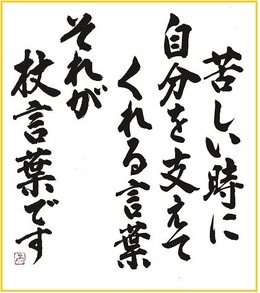 苦しい時に
自分を支えて
くれる言葉
それが
杖言葉です